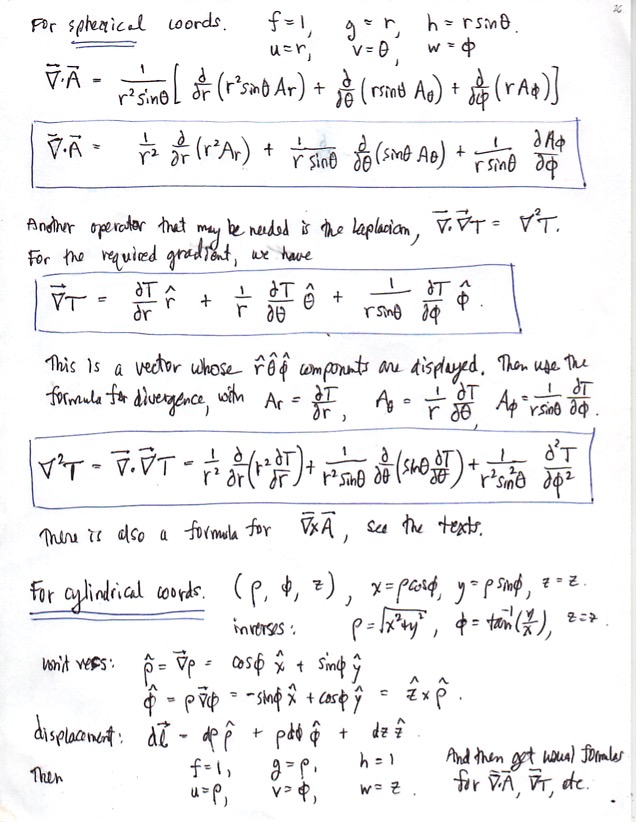 26
For spherical coords. f=1, g=r, h=r sinθ.
u=r, v=θ, w=φ
∇⃗·A⃗ = 1/(r² sinθ) [ ∂/∂r (r² sinθ Ar) + ∂/∂θ (r sinθ Aθ) + ∂/∂φ (r Aφ) ]
∇⃗·A⃗ = 1/r² ∂/∂r (r² Ar) + 1/(r sinθ) ∂/∂θ (sinθ Aθ) + 1/(r sinθ) ∂Aφ/∂φ
Another operator that may be needed is the Laplacian, ∇⃗·∇⃗T = ∇²T.
For the required gradient, we have
∇⃗T = ∂T/∂r r̂ + 1/r ∂T/∂θ θ̂ + 1/(r sinθ) ∂T/∂φ φ̂.
This is a vector whose r̂ θ̂ φ̂ components are displayed. Then use the
formula for divergence, with Ar = ∂T/∂r, Aθ = 1/r ∂T/∂θ, Aφ = 1/(r sinθ) ∂T/∂φ.
∇²T = ∇⃗·∇⃗T = 1/r² ∂/∂r (r² ∂T/∂r) + 1/(r² sinθ) ∂/∂θ (sinθ ∂T/∂θ) + 1/(r² sin²θ) ∂²T/∂φ²
There is also a formula for ∇⃗×A⃗, see the texts.
For cylindrical coords. (ρ, φ, z), x=ρcosφ, y=ρ sinφ, z=z.
inverses: ρ=√(x²+y²), φ=tan⁻¹(y/x), z=z.
unit vecs: ρ̂ = ∇⃗ρ = cosφ x̂ + sinφ ŷ
φ̂ = ρ∇⃗φ = -sinφ x̂ + cosφ ŷ = ẑ × ρ̂.
displacement: dl⃗ = dρ ρ̂ + ρdφ φ̂ + dz ẑ.
Then f=1, g=ρ, h=1
u=ρ, v=φ, w=z.
And then get usual formulas
for ∇⃗·A⃗, ∇⃗T, etc.